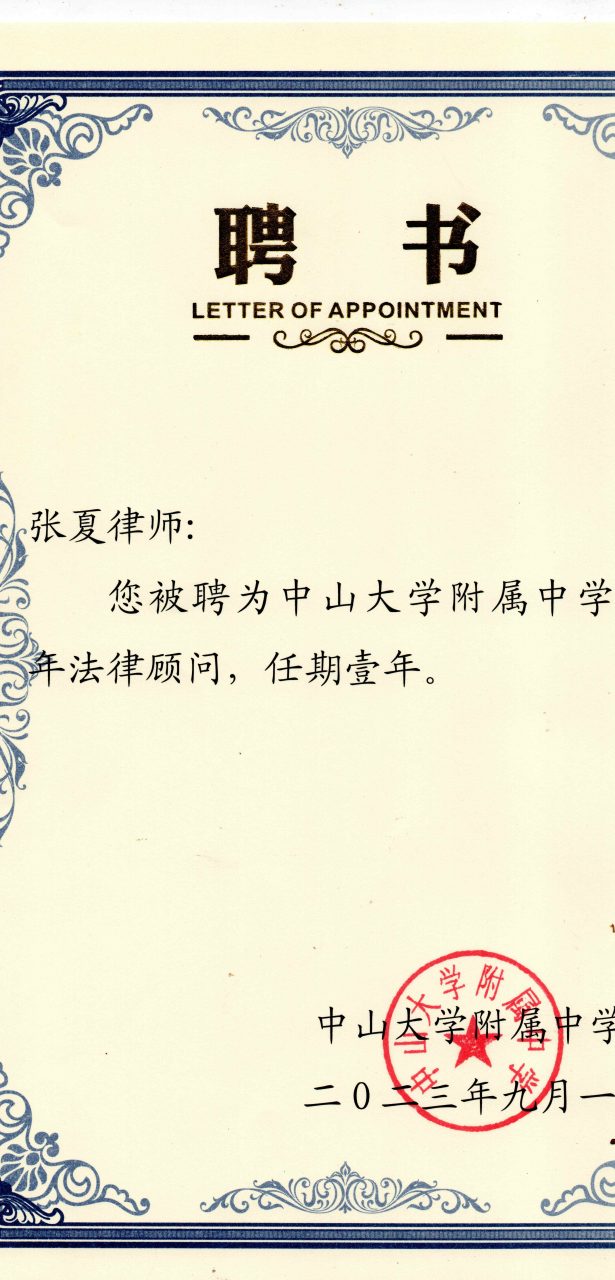 聘 书
LETTER OF APPOINTMENT
张夏律师:
您被聘为中山大学附属中学
年法律顾问，任期壹年。
中山大学附属中学
中山大学附属中学
二0二三年九月一